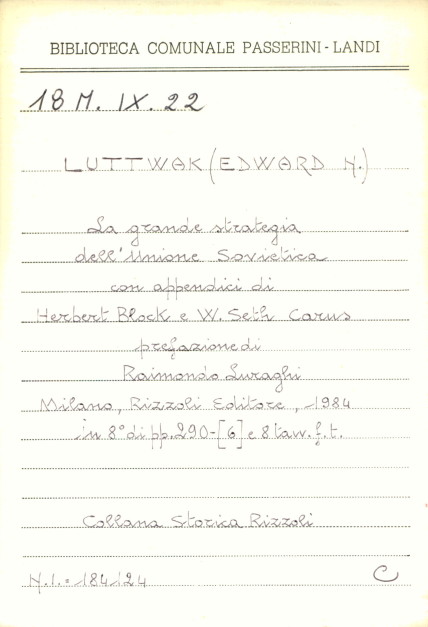 BIBLIOTECA COMUNALE PASSERINI-LANDI
18 M. IX. 22
LUTTWAK (EDWARD N.)
La grande strategia
dell'Unione Sovietica
con appendici di
Herbert Block e W. Seth Carus
prefazione di
Raimondo Luraghi
Milano, Rizzoli Editore, 1984
in 8° di pp. 290-[6] e 8 tavv. f. t.
Collana Storica Rizzoli
N.I. = 184124
C